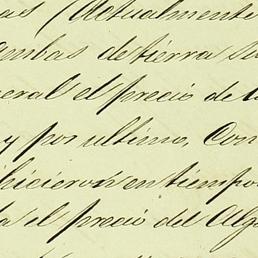 as (Actualmente
ambas de tierra su
eral el precio de l
y por ultimo, Con
hicieron en tiempo
a el precio del Algo